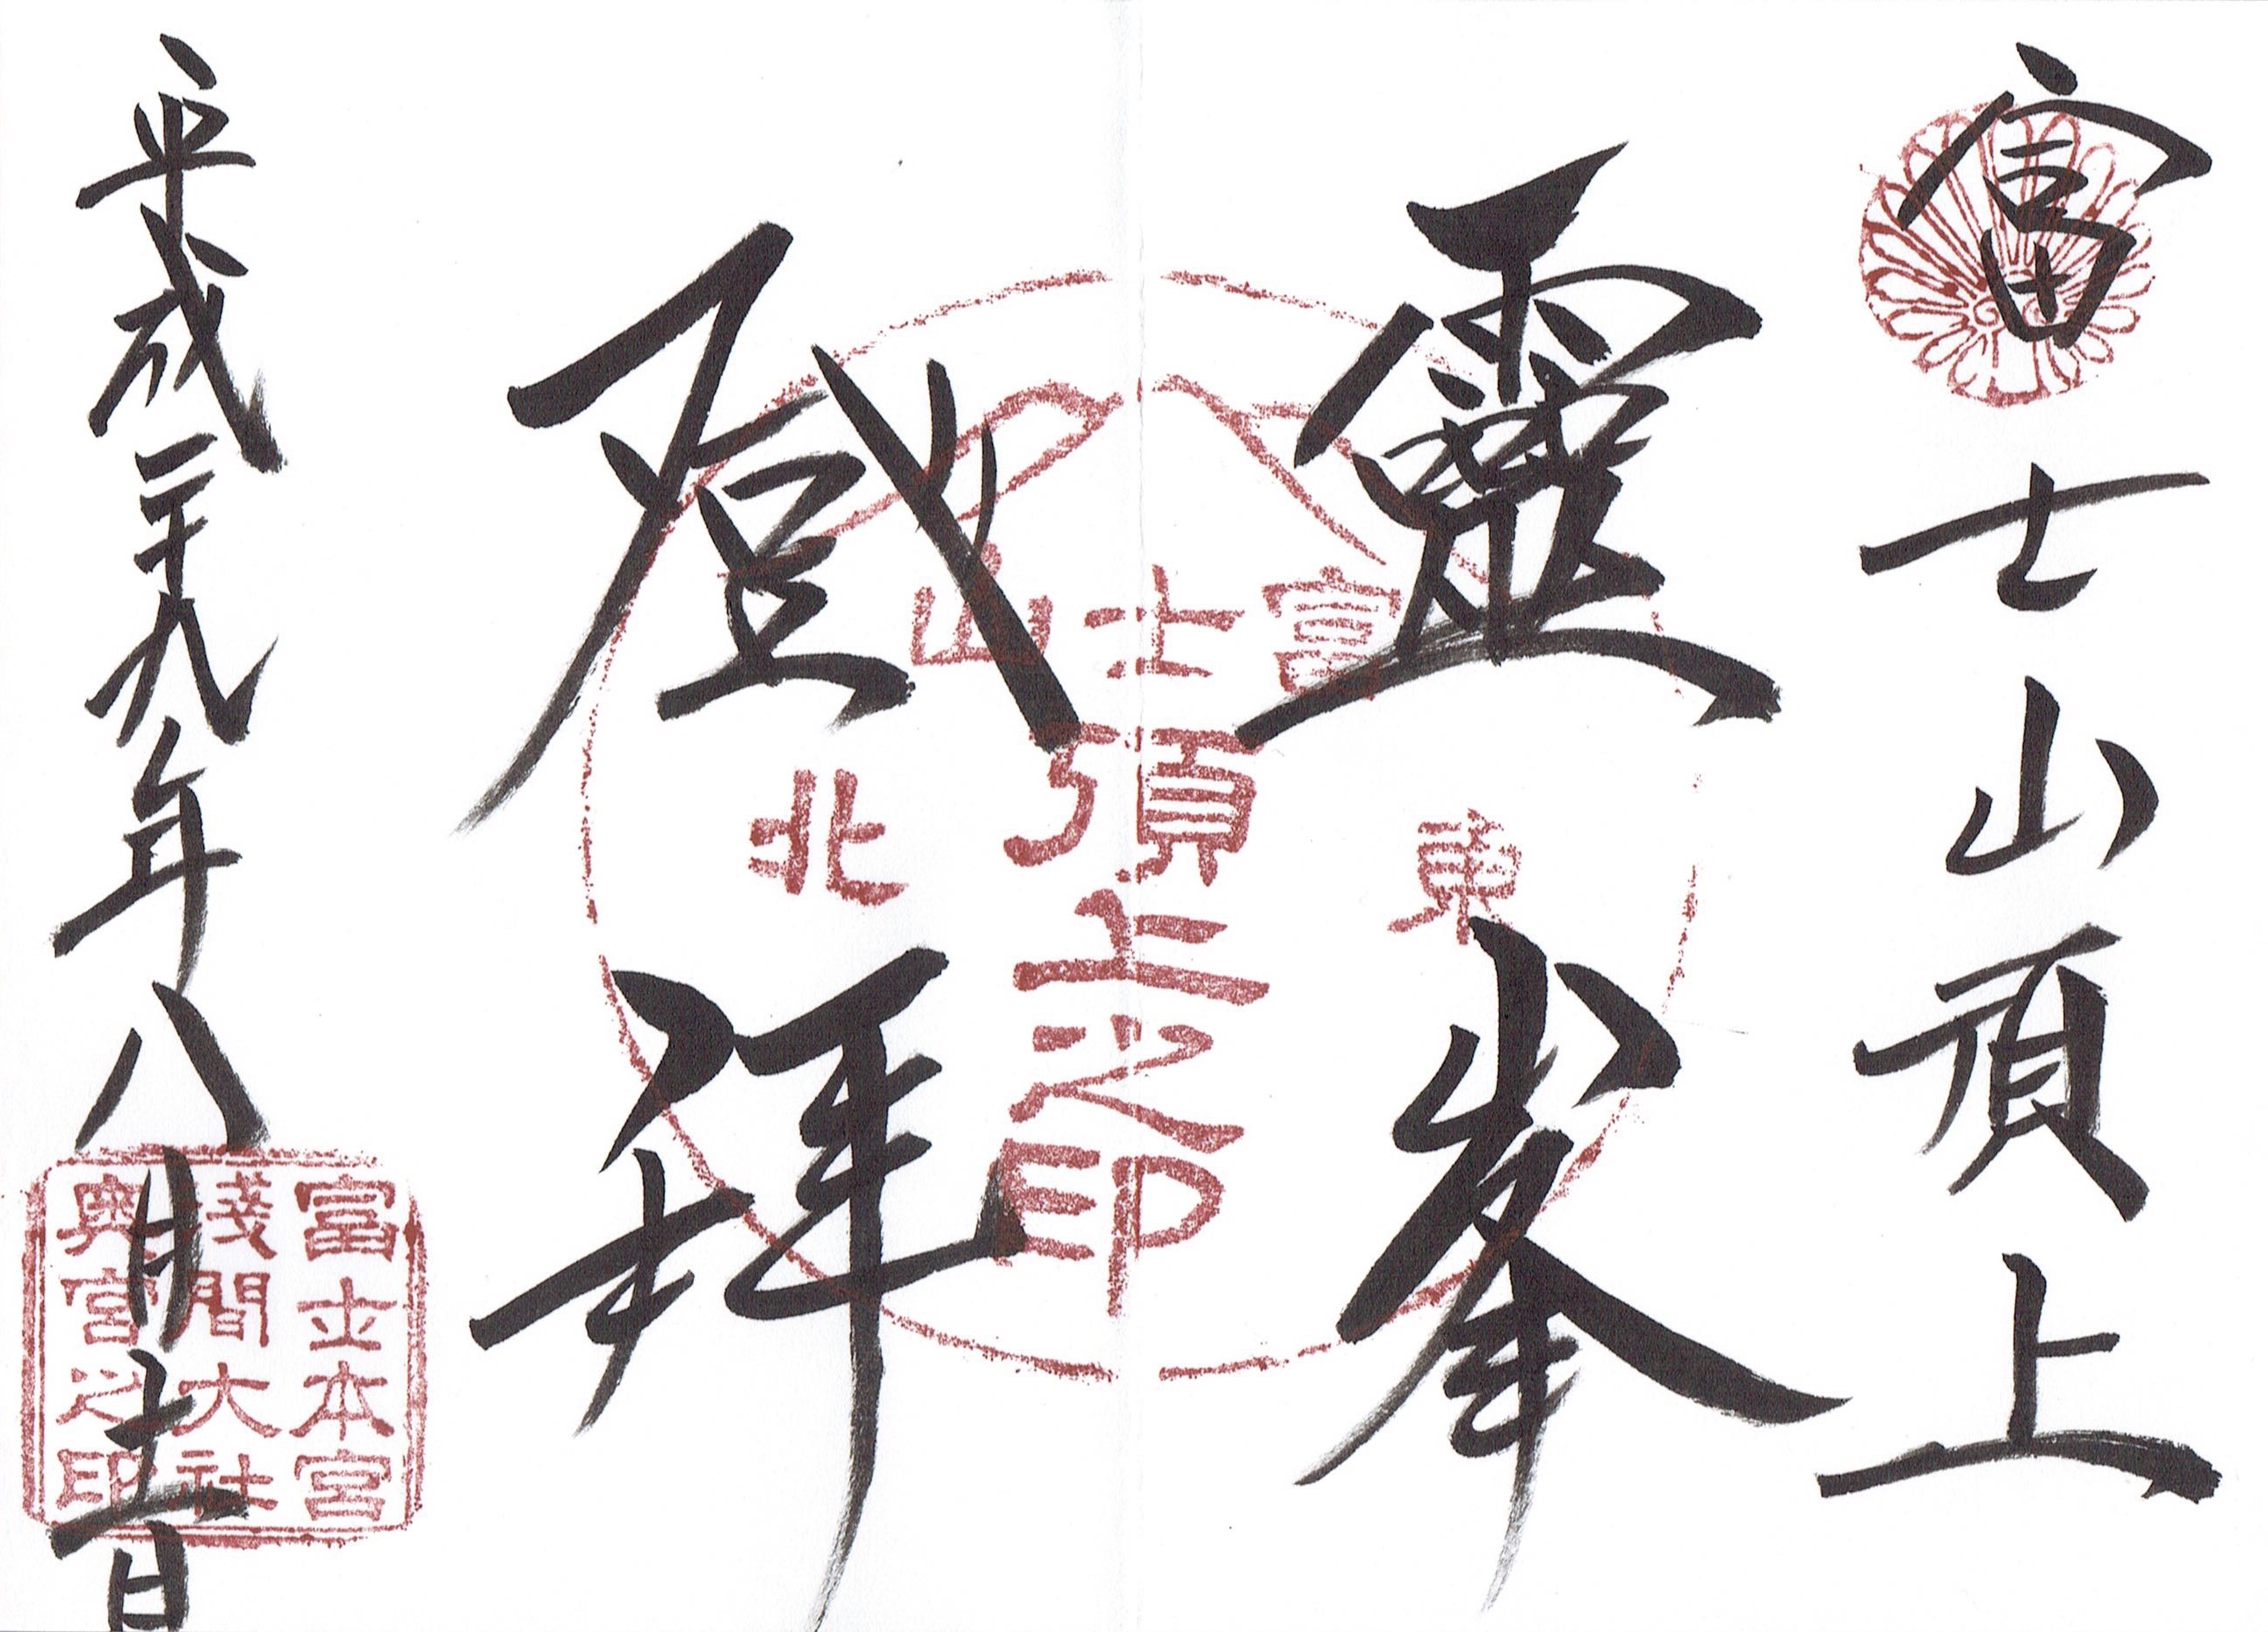 富士山頂上
靈峯
登拝
平成二十九年八月十一日
富士山
頂上之印
東
北
富士本宮
淺間大社
奥宮之印